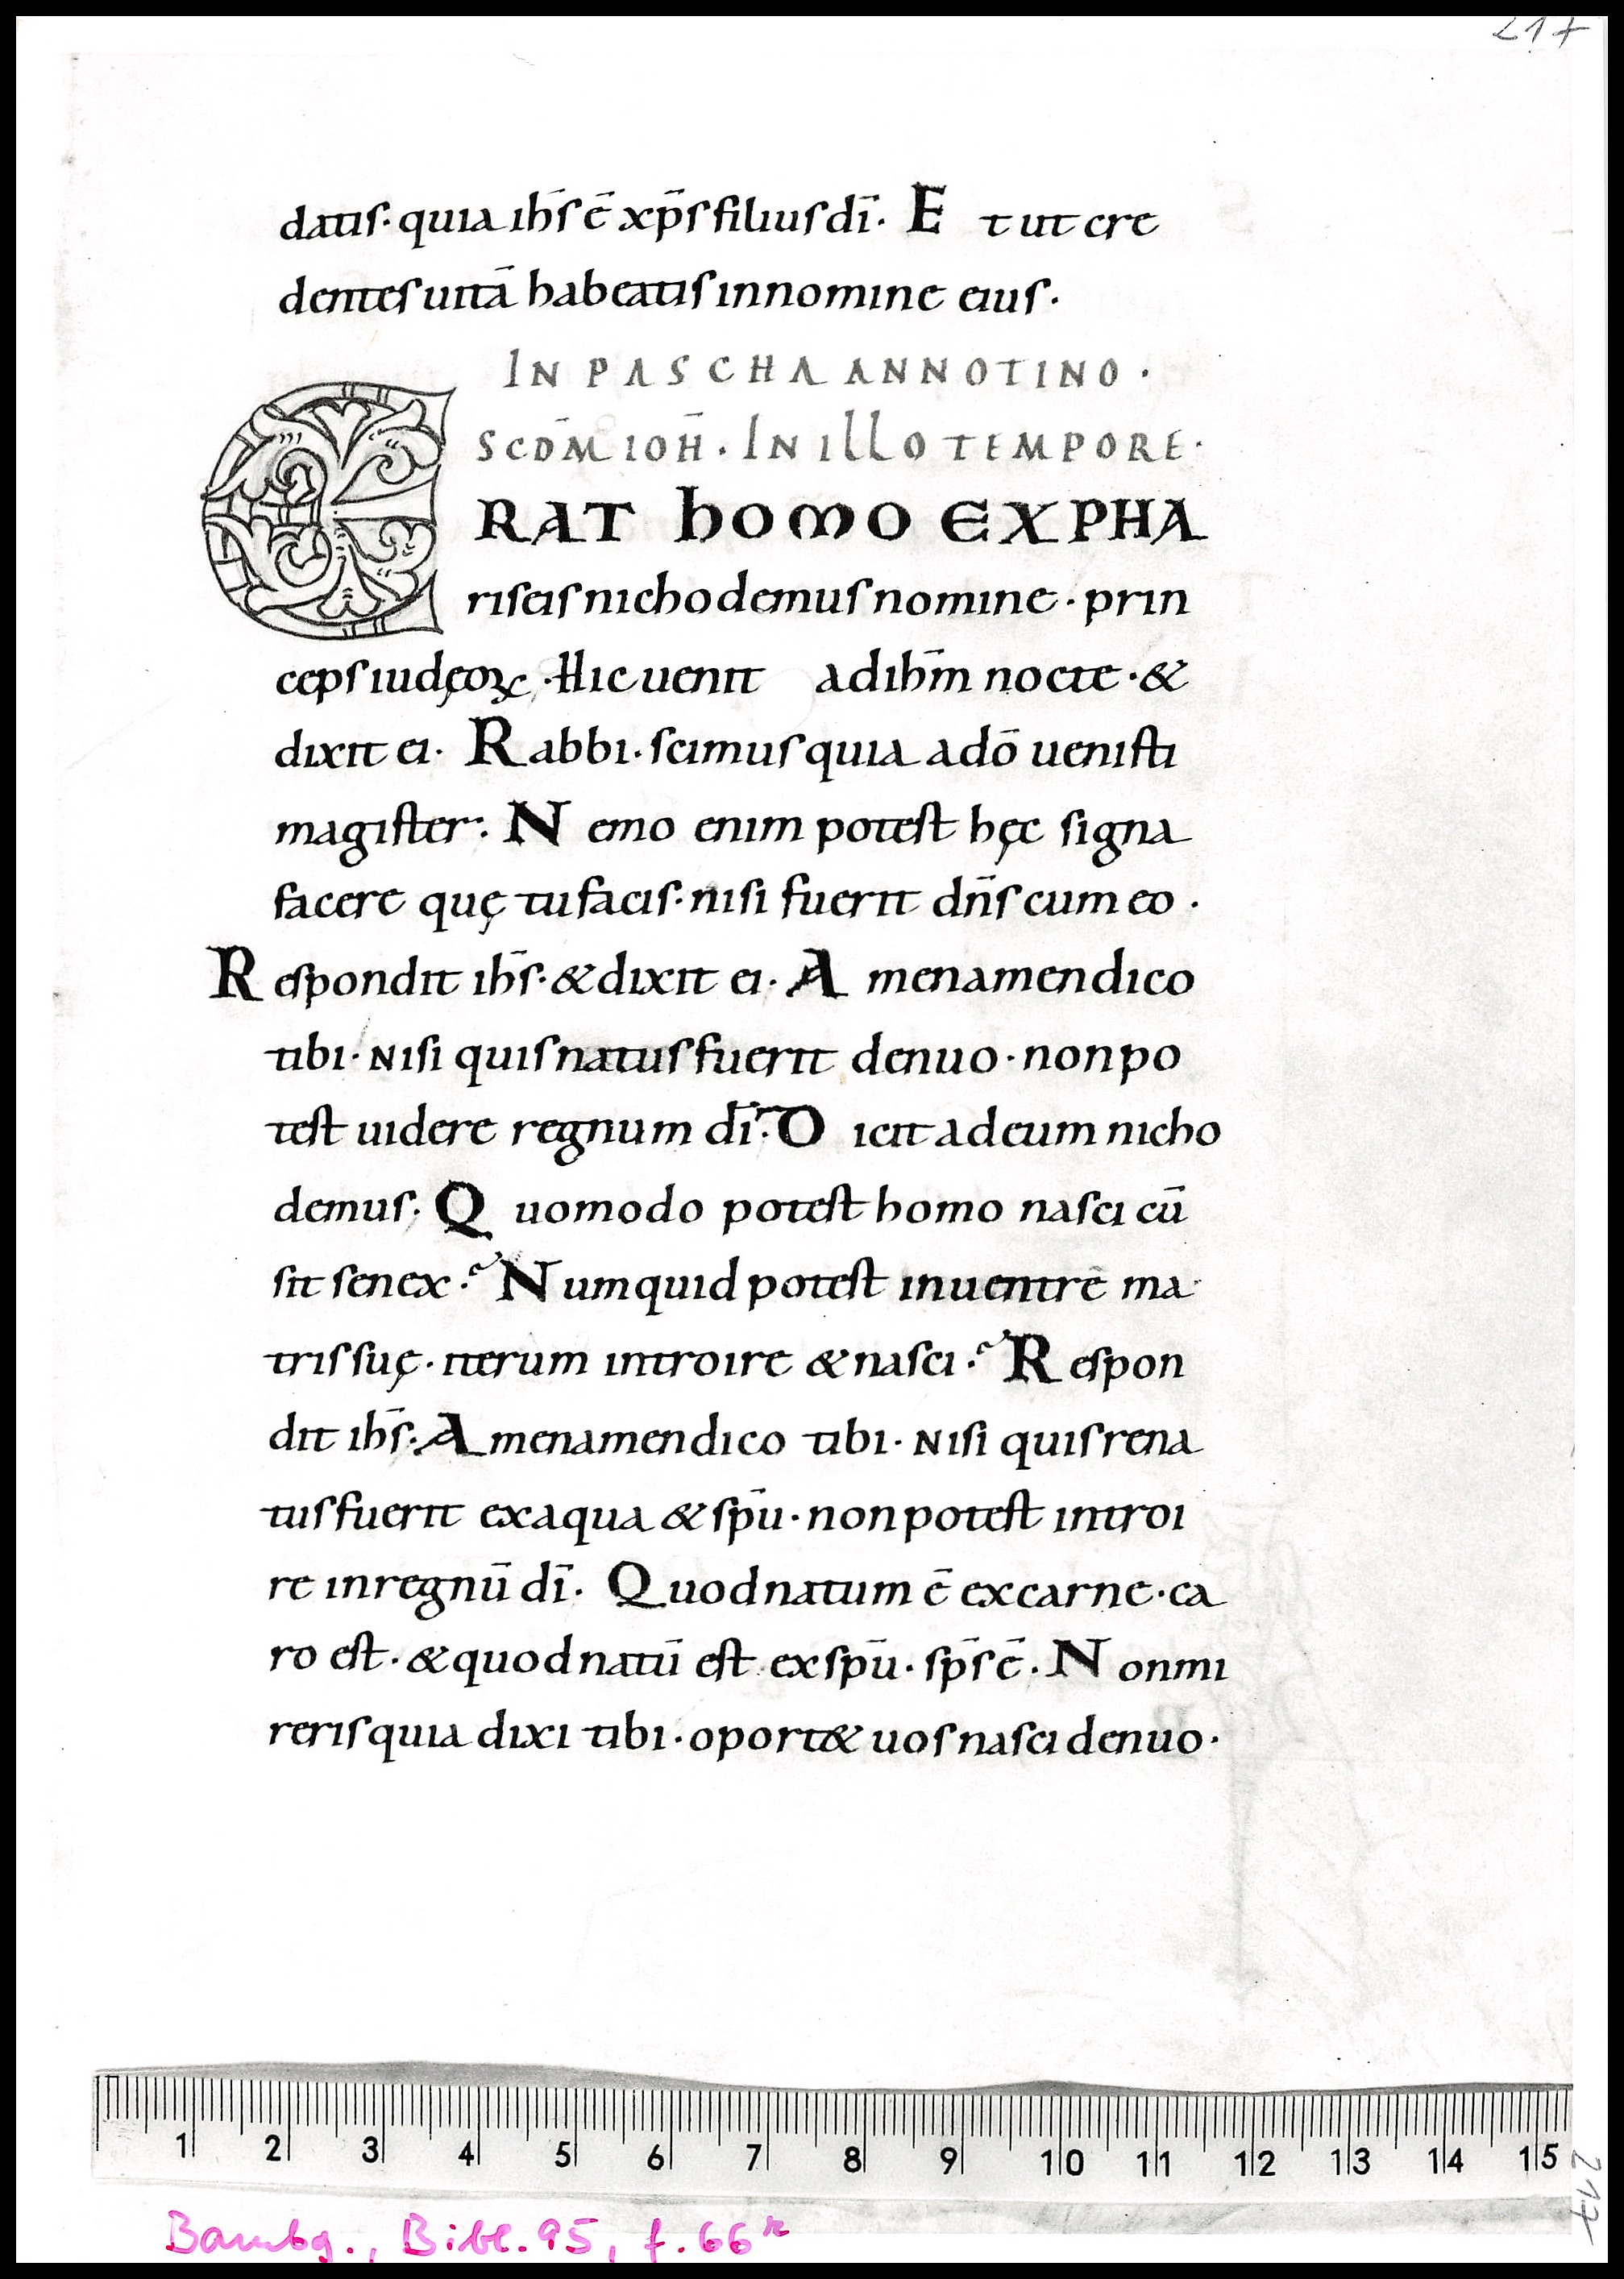 217
datis· quia ih̄s ē xp̄s filius dī. Et ut cre
dentes uitā habeatis in nomine eius.
IN PASCHA ANNOTINO.
SCDM̄ IOH̄. IN ILLO TEMPORE.
ERAT homo EX PHA
riseis nichodemus nomine· prin
ceps iudęoꝝ· Hic uenit ad ih̄m nocte· &
dixit ei. Rabbi· scimus quia a dō uenisti
magister. Nemo enim potest hęc signa
facere quę tu facis· nisi fuerit dn̄s cum eo.
Respondit ih̄s· & dixit ei. Amen amen dico
tibi· Nisi quis natus fuerit denuo· non po
test uidere regnum dī. Dicit ad eum nicho
demus. Quomodo potest homo nasci cū
sit senex? Numquid potest in uentrē ma
tris suę· iterum introire & nasci? Respon
dit ih̄s. Amen amen dico tibi· Nisi quis rena
tus fuerit ex aqua & sp̄u· non potest introi
re in regnū dī. Quod natum ē ex carne· ca
ro est· & quod natū est ex sp̄u· sp̄s ē. Non mi
reris quia dixi tibi· oport& uos nasci denuo.
1 2 3 4 5 6 7 8 9 10 11 12 13 14 15
217
Bambg., Bibl. 95, f. 66r